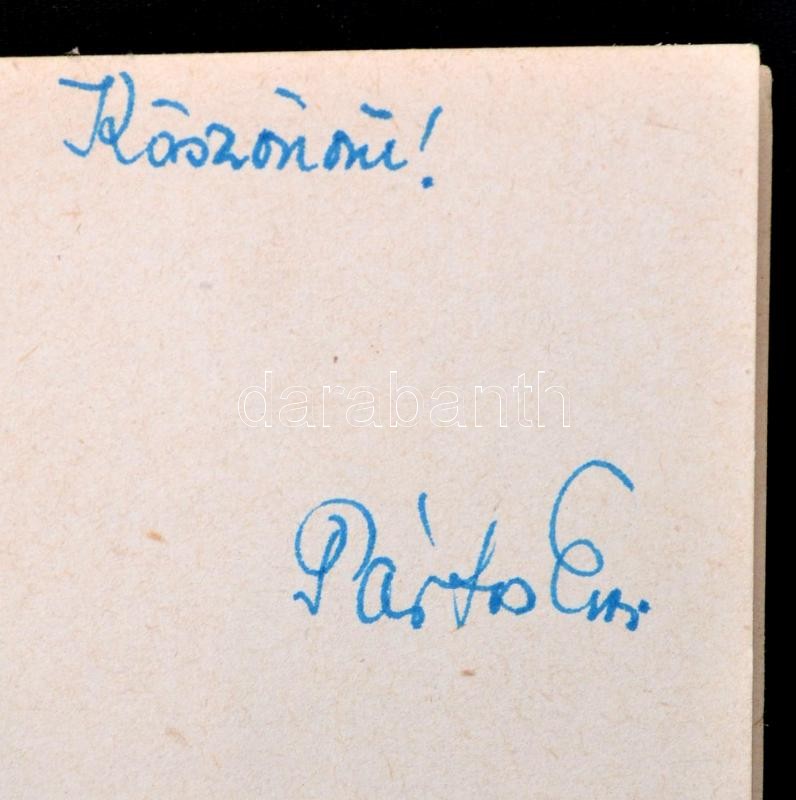 Köszönöm!
darabanth
Pártos Éva